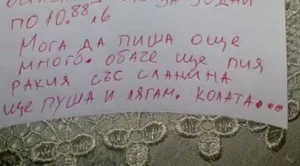 ПО 10.88 лв
МОГА ДА ПИША ОЩЕ
МНОГО. ОБАЧЕ ЩЕ ПИЯ
РАКИЯ СЪС СЛАНИНА
ЩЕ ПУША И ЛЯГАМ. КОЛАТА...